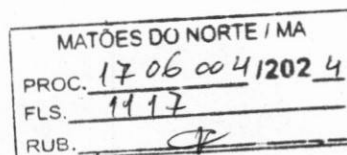 MATÕES DO NORTE / MA
PROC. 17 06 004 /2024
FLS. 1117
RUB.